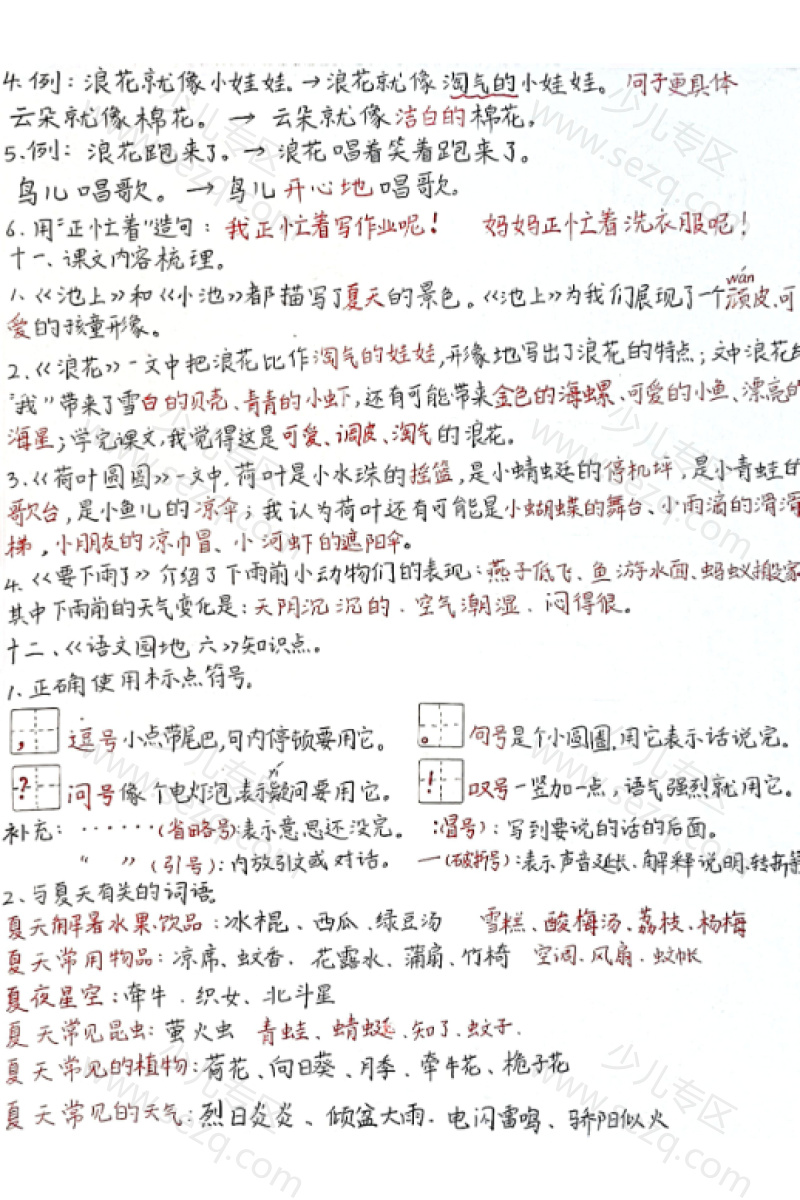 4.例：浪花就像小娃娃。→浪花就像淘气的小娃娃。 句子更具体
云朵就像棉花。 → 云朵就像洁白的棉花。
5.例：浪花跑来了。→浪花唱着笑着跑来了。
鸟儿唱歌。→鸟儿开心地唱歌。
6.用“正忙着”造句：我正忙着写作业呢！ 妈妈正忙着洗衣服呢！
十一、课文内容梳理。
wán
1.《池上》和《小池》都描写了夏天的景色。《池上》为我们展现了一个顽皮、可
爱的孩童形象。
2.《浪花》一文中把浪花比作淘气的娃娃，形象地写出了浪花的特点；文中浪花给
“我”带来了雪白的贝壳、青青的小虾，还有可能带来金色的海螺、可爱的小鱼、漂亮的
海星；学完课文，我觉得这是可爱、调皮、淘气的浪花。
3.《荷叶圆圆》一文中，荷叶是小水珠的摇篮，是小蜻蜓的停机坪，是小青蛙的
歌台，是小鱼儿的凉伞；我认为荷叶还有可能是小蝴蝶的舞台、小雨滴的滑滑
梯，小朋友的凉巾冒、小河虾的遮阳伞。
4.《要下雨了》介绍了下雨前小动物们的表现：燕子低飞、鱼游水面、蚂蚁搬家
其中下雨前的天气变化是：天阴沉沉的、空气潮湿、闷得很。
十二、《语文园地六》知识点。
1.正确使用标点符号。
， 逗号小点带尾巴，句内停顿要用它。 。 句号是个小圆圈，用它表示话说完。
yí
？ 问号像个电灯泡，表示疑问要用它。 ！ 叹号一竖加一点，语气强烈就用它。
补充：······（省略号）：表示意思还没完。 ：（冒号）：写到要说的话的后面。
“ ”（引号）：内放引文或对话。 —（破折号）：表示声音延长、解释说明、转折等
2.与夏天有关的词语。
夏天解暑水果、饮品：冰棍、西瓜、绿豆汤 雪糕、酸梅汤、荔枝、杨梅
夏天常用物品：凉席、蚊香、花露水、蒲扇、竹椅 空调、风扇、蚊帐
夏夜星空：牵牛、织女、北斗星
夏天常见昆虫：萤火虫 青蛙、蜻蜓、知了、蚊子.
夏天常见的植物：荷花、向日葵、月季、牵牛花、栀子花
夏天常见的天气：烈日炎炎、倾盆大雨、电闪雷鸣、骄阳似火
少儿专区
www.sezq.com